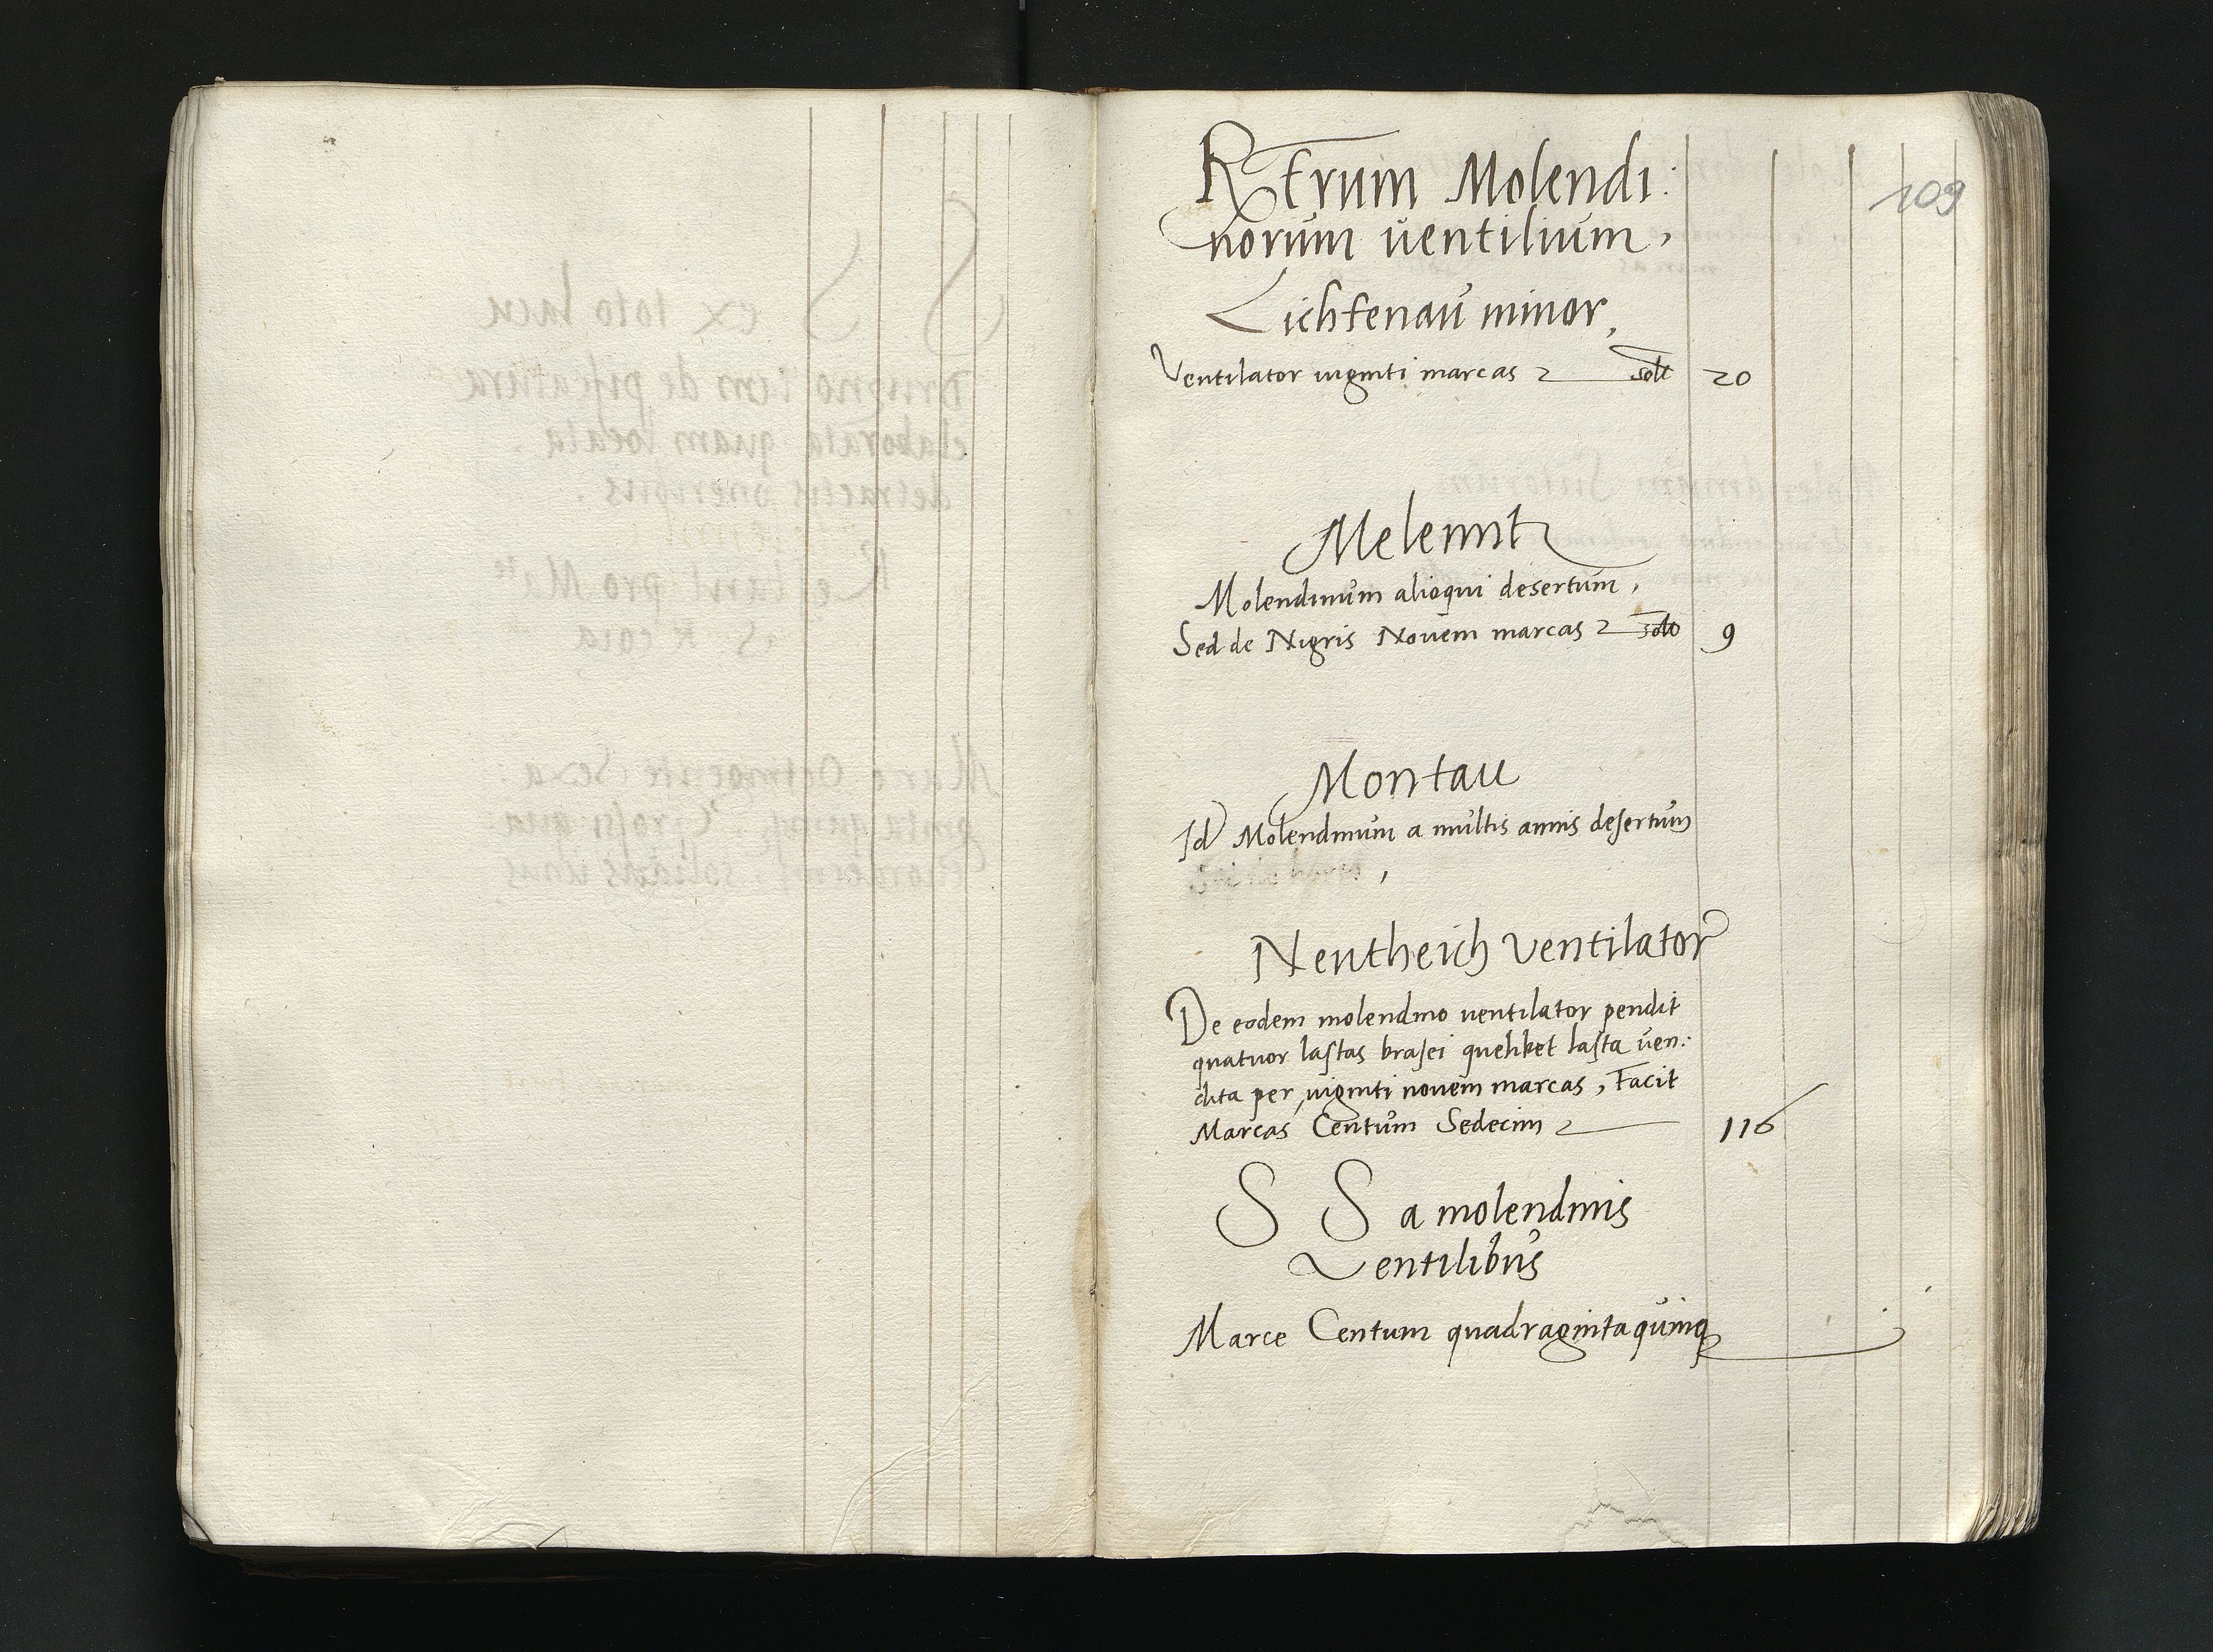 109
Rtrum Molendi:
norum ventilium,
Lichtenau minor,
Ventilator viginti marcas solt 20
Melenntz
Molendinum alioqui desertum,
Sed de Nigris Novem marcas solt 9
Montau
Id Molendinum a multis annis desertum
Neutheich Ventilator
De eodem molendino ventilator pendit
quatuor lastas brasei quelibet lasta ven:
dita per viginti novem marcas, Facit
Marcas Centum Sedecim 116
S S a molendinis
Ventilibus
Marce Centum quadraginta quinq